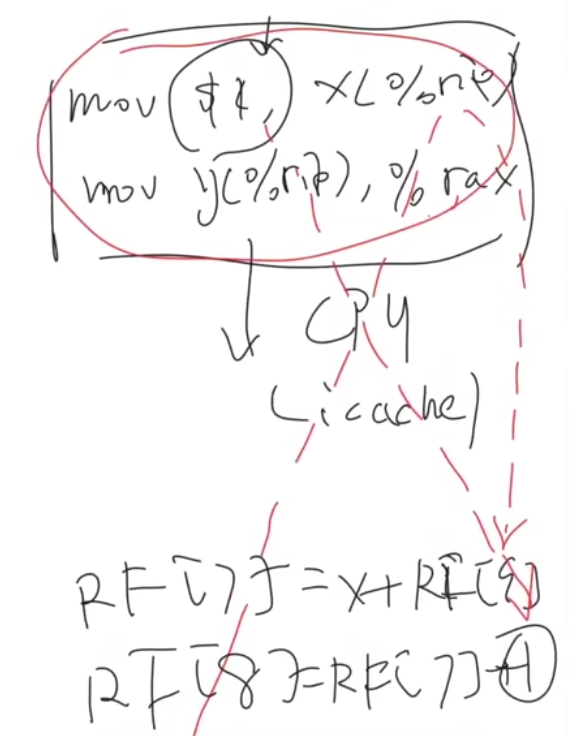 mov $1, x(%rip)
mov y(%rip), %rax
CPU
(icache)
RF[7] = x + RF[9]
RF[8] = RF[7]